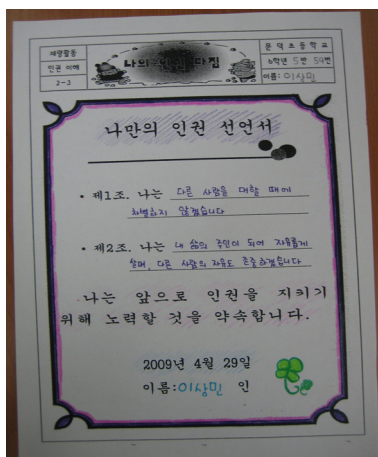 재량활동
인권 이해
2-3
나의 인권 다짐
문덕초등학교
6학년 5반 59번
이름: 이상민
나만의 인권 선언서
• 제1조. 나는 다른 사람을 대할 때에
차별하지 않겠습니다
• 제2조. 나는 내 삶의 주인이 되어 자유롭게
살며, 다른 사람의 자유도 존중하겠습니다
나는 앞으로 인권을 지키기
위해 노력할 것을 약속합니다.
2009년 4월 29일
이름:이상민 인